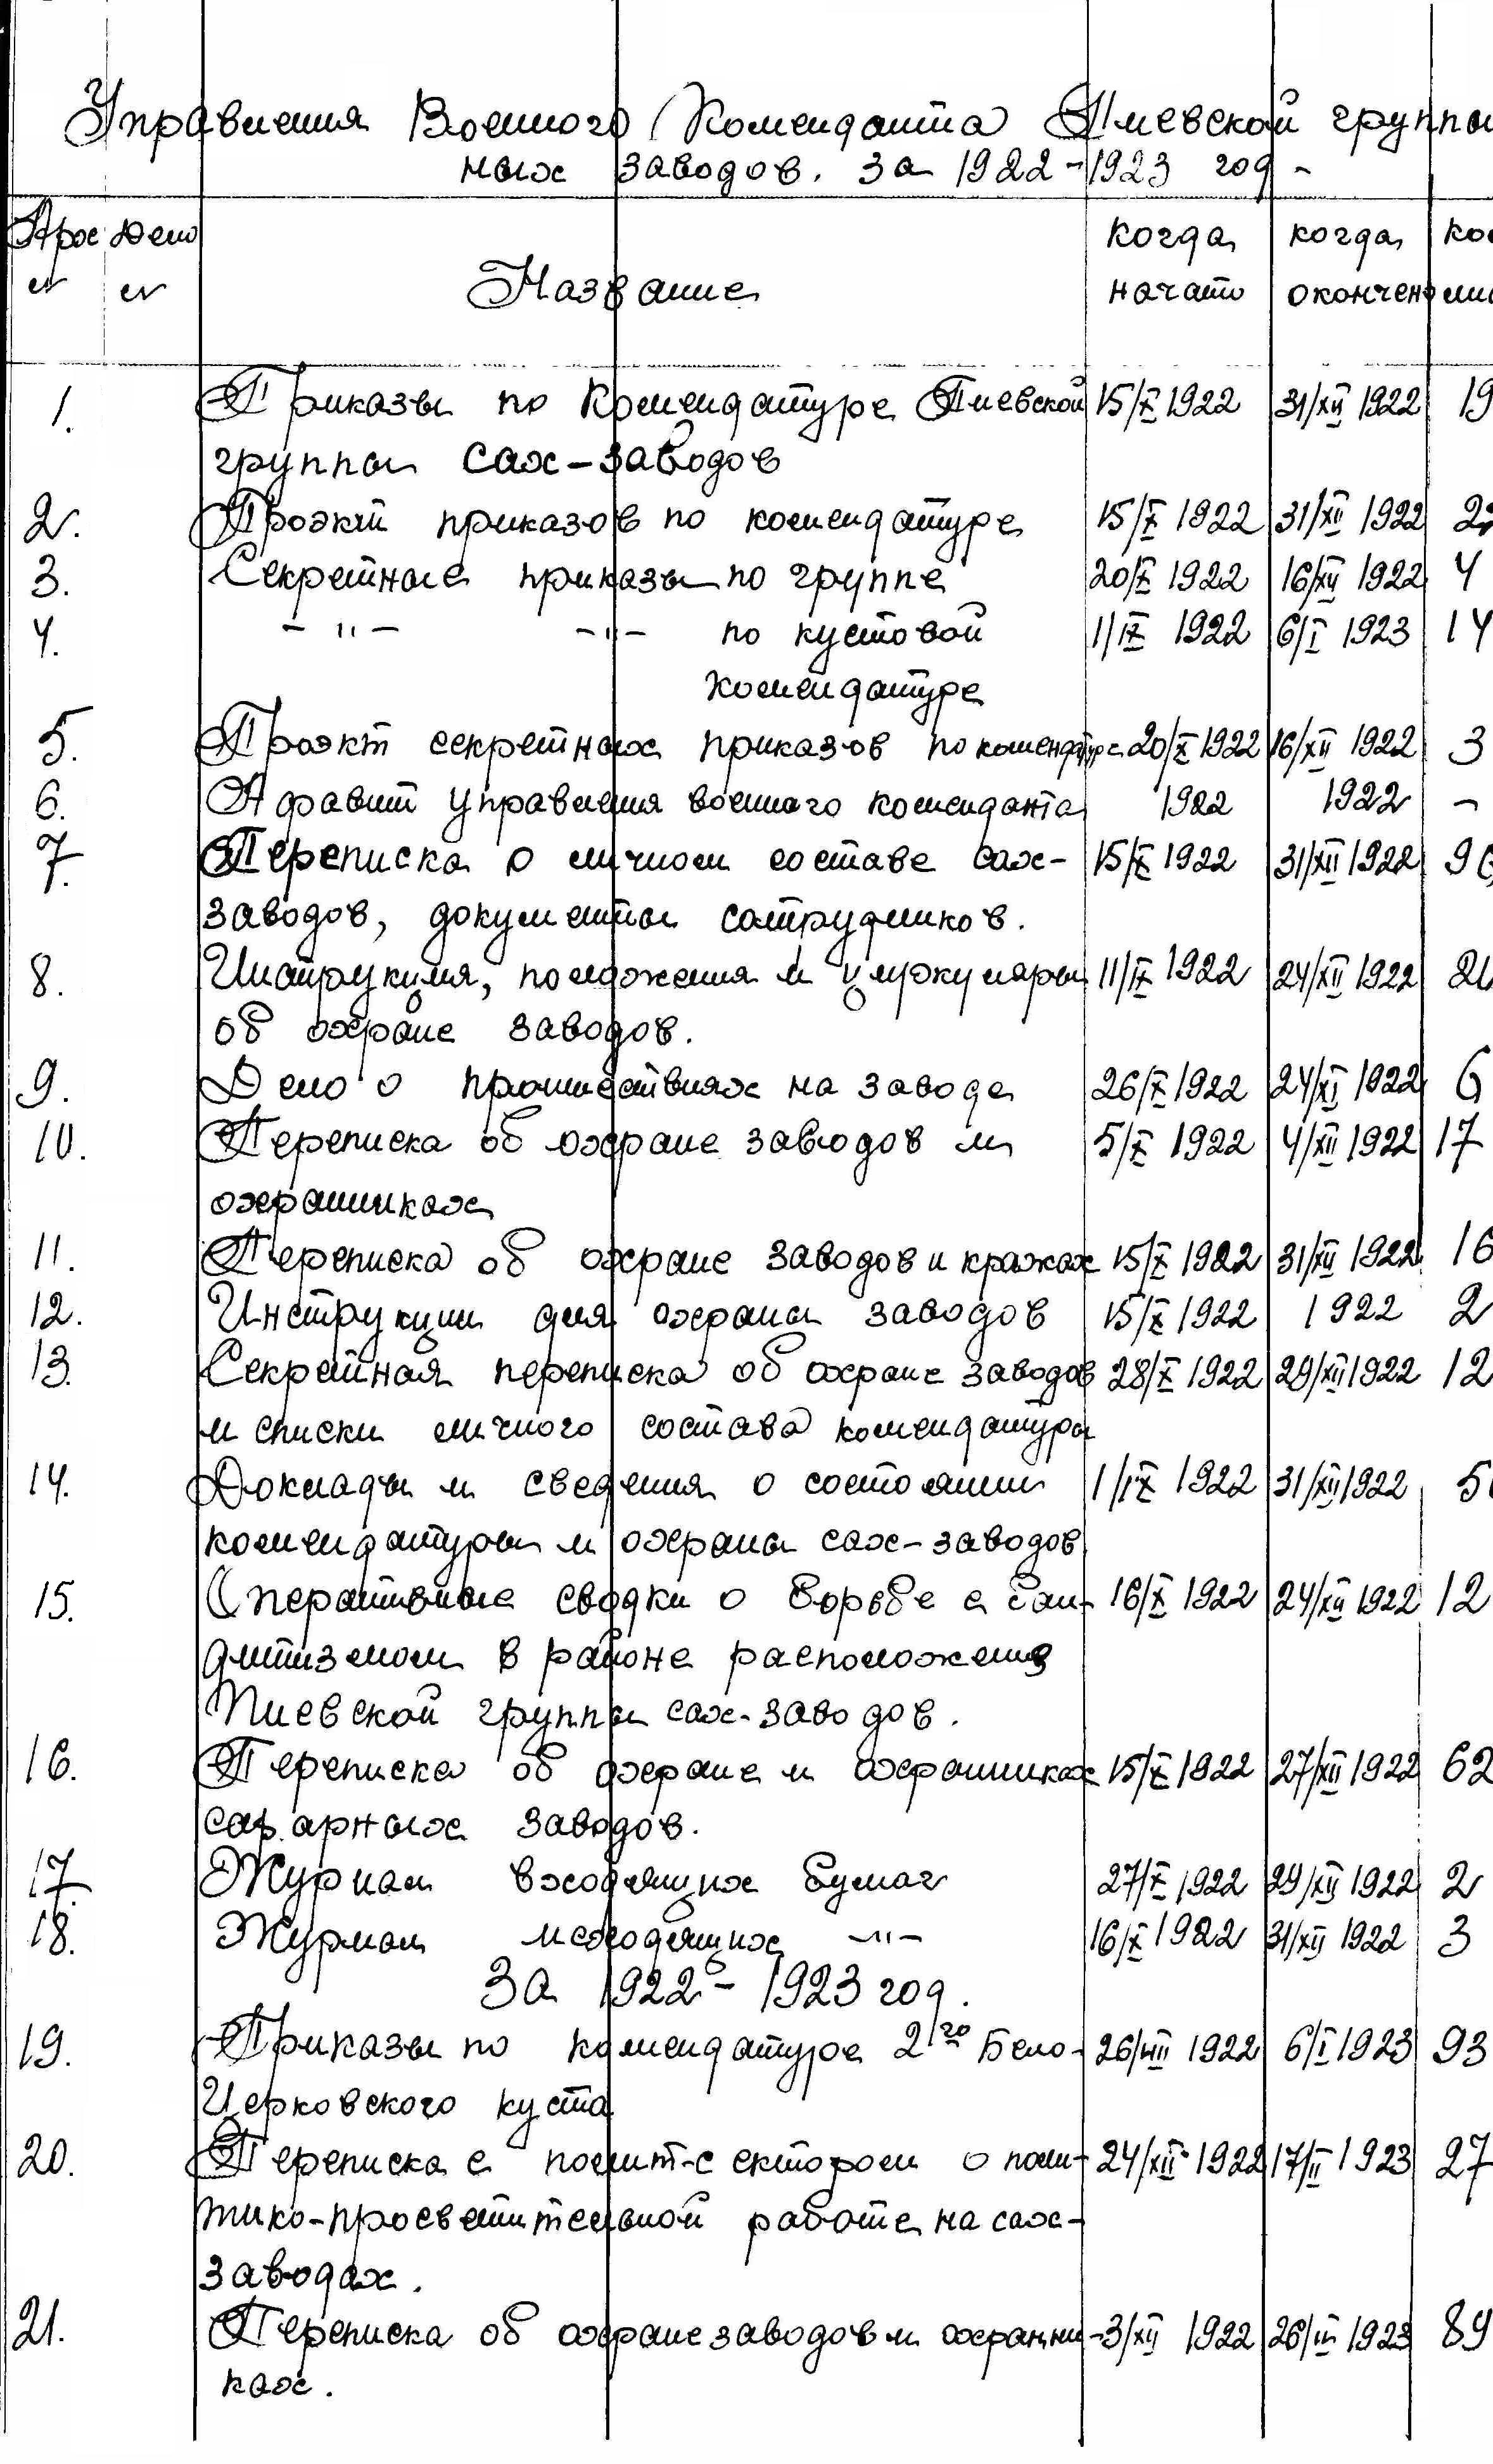 Управления Военного Коменданта Киевской группы
ных заводов. за 1922-1923 год -
Арх Дело
№ №
Название
когда когда кол
начато окончено ли
1. Приказы по Комендатуре Киевской 15/X 1922 31/XII 1922 19
группы сах-заводов
2. Проэкт приказов по комендатуре 15/X 1922 31/XII 1922 22
3. Секретные приказы по группе 20/X 1922 16/XII 1922 4
4. - " - - " - по кустовой 1/IX 1922 6/I 1923 14
комендатуре
5. Проэкт секретных приказов по комендатуре 20/X 1922 16/XII 1922 3
6. Алфавит управления военного коменданта 1922 1922 -
7. Переписка о личном составе сах- 15/X 1922 31/XII 1922 96
заводов, документы сотрудников.
8. Инструкция, положения и циркуляры 11/IX 1922 24/XII 1922 21
об охране заводов.
9. Дело о происшествиях на заводе 26/X 1922 24/XI 1922 6
10. Переписка об охране заводов и 5/X 1922 4/XII 1922 17
охранниках
11. Переписка об охране заводов и кражах 15/X 1922 31/XII 1922 16
12. Инструкции для охраны заводов 15/X 1922 1922 2
13. Секретная переписка об охране заводов 28/X 1922 29/XII 1922 12
и списки личного состава комендатуры
14. Доклады и сведения о состоянии 1/IX 1922 31/XII 1922 5
комендатуры и охраны сах-заводов
15. Оперативные сводки о борьбе с бан- 16/X 1922 24/XII 1922 12
дитизмом в районе расположения
Киевской группы сах-заводов.
16. Переписка об охране и охранниках 15/X 1922 27/XII 1922 62
сахарных заводов.
17. Журнал входящих бумаг 27/X 1922 29/XII 1922 2
18. Журнал исходящих -"- 16/X 1922 31/XII 1922 3
За 1922 - 1923 год.
19. Приказы по комендатуре 2го Бело- 26/VIII 1922 6/I 1923 93
Церковского куста
20. Переписка с полит-сектором о поли- 24/XII 1922 17/II 1923 27
тико-просветительной работе на сах-
заводах.
21. Переписка об охране заводов и охранни- 3/XII 1922 26/III 1923 89
ках.